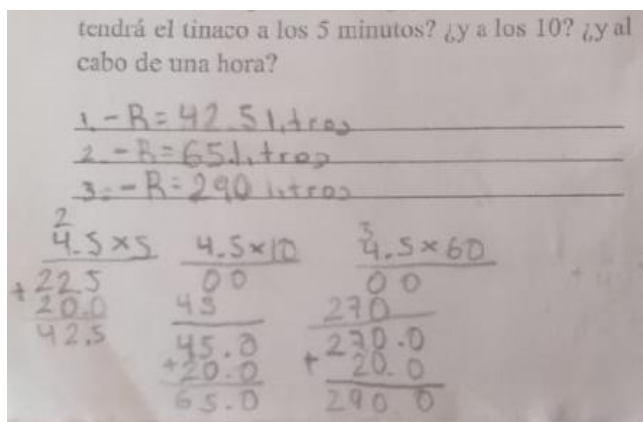 tendrá el tinaco a los 5 minutos? ¿y a los 10? ¿y al
cabo de una hora?
1.-R=42.5 litros
2.-R=65 litros
3.-R=290 litros
2
4.5×5
22.5
+20.0
42.5
4.5×10
00
45
45.0
+20.0
65.0
3
4.5×60
00
270
270.0
+20.0
290.0